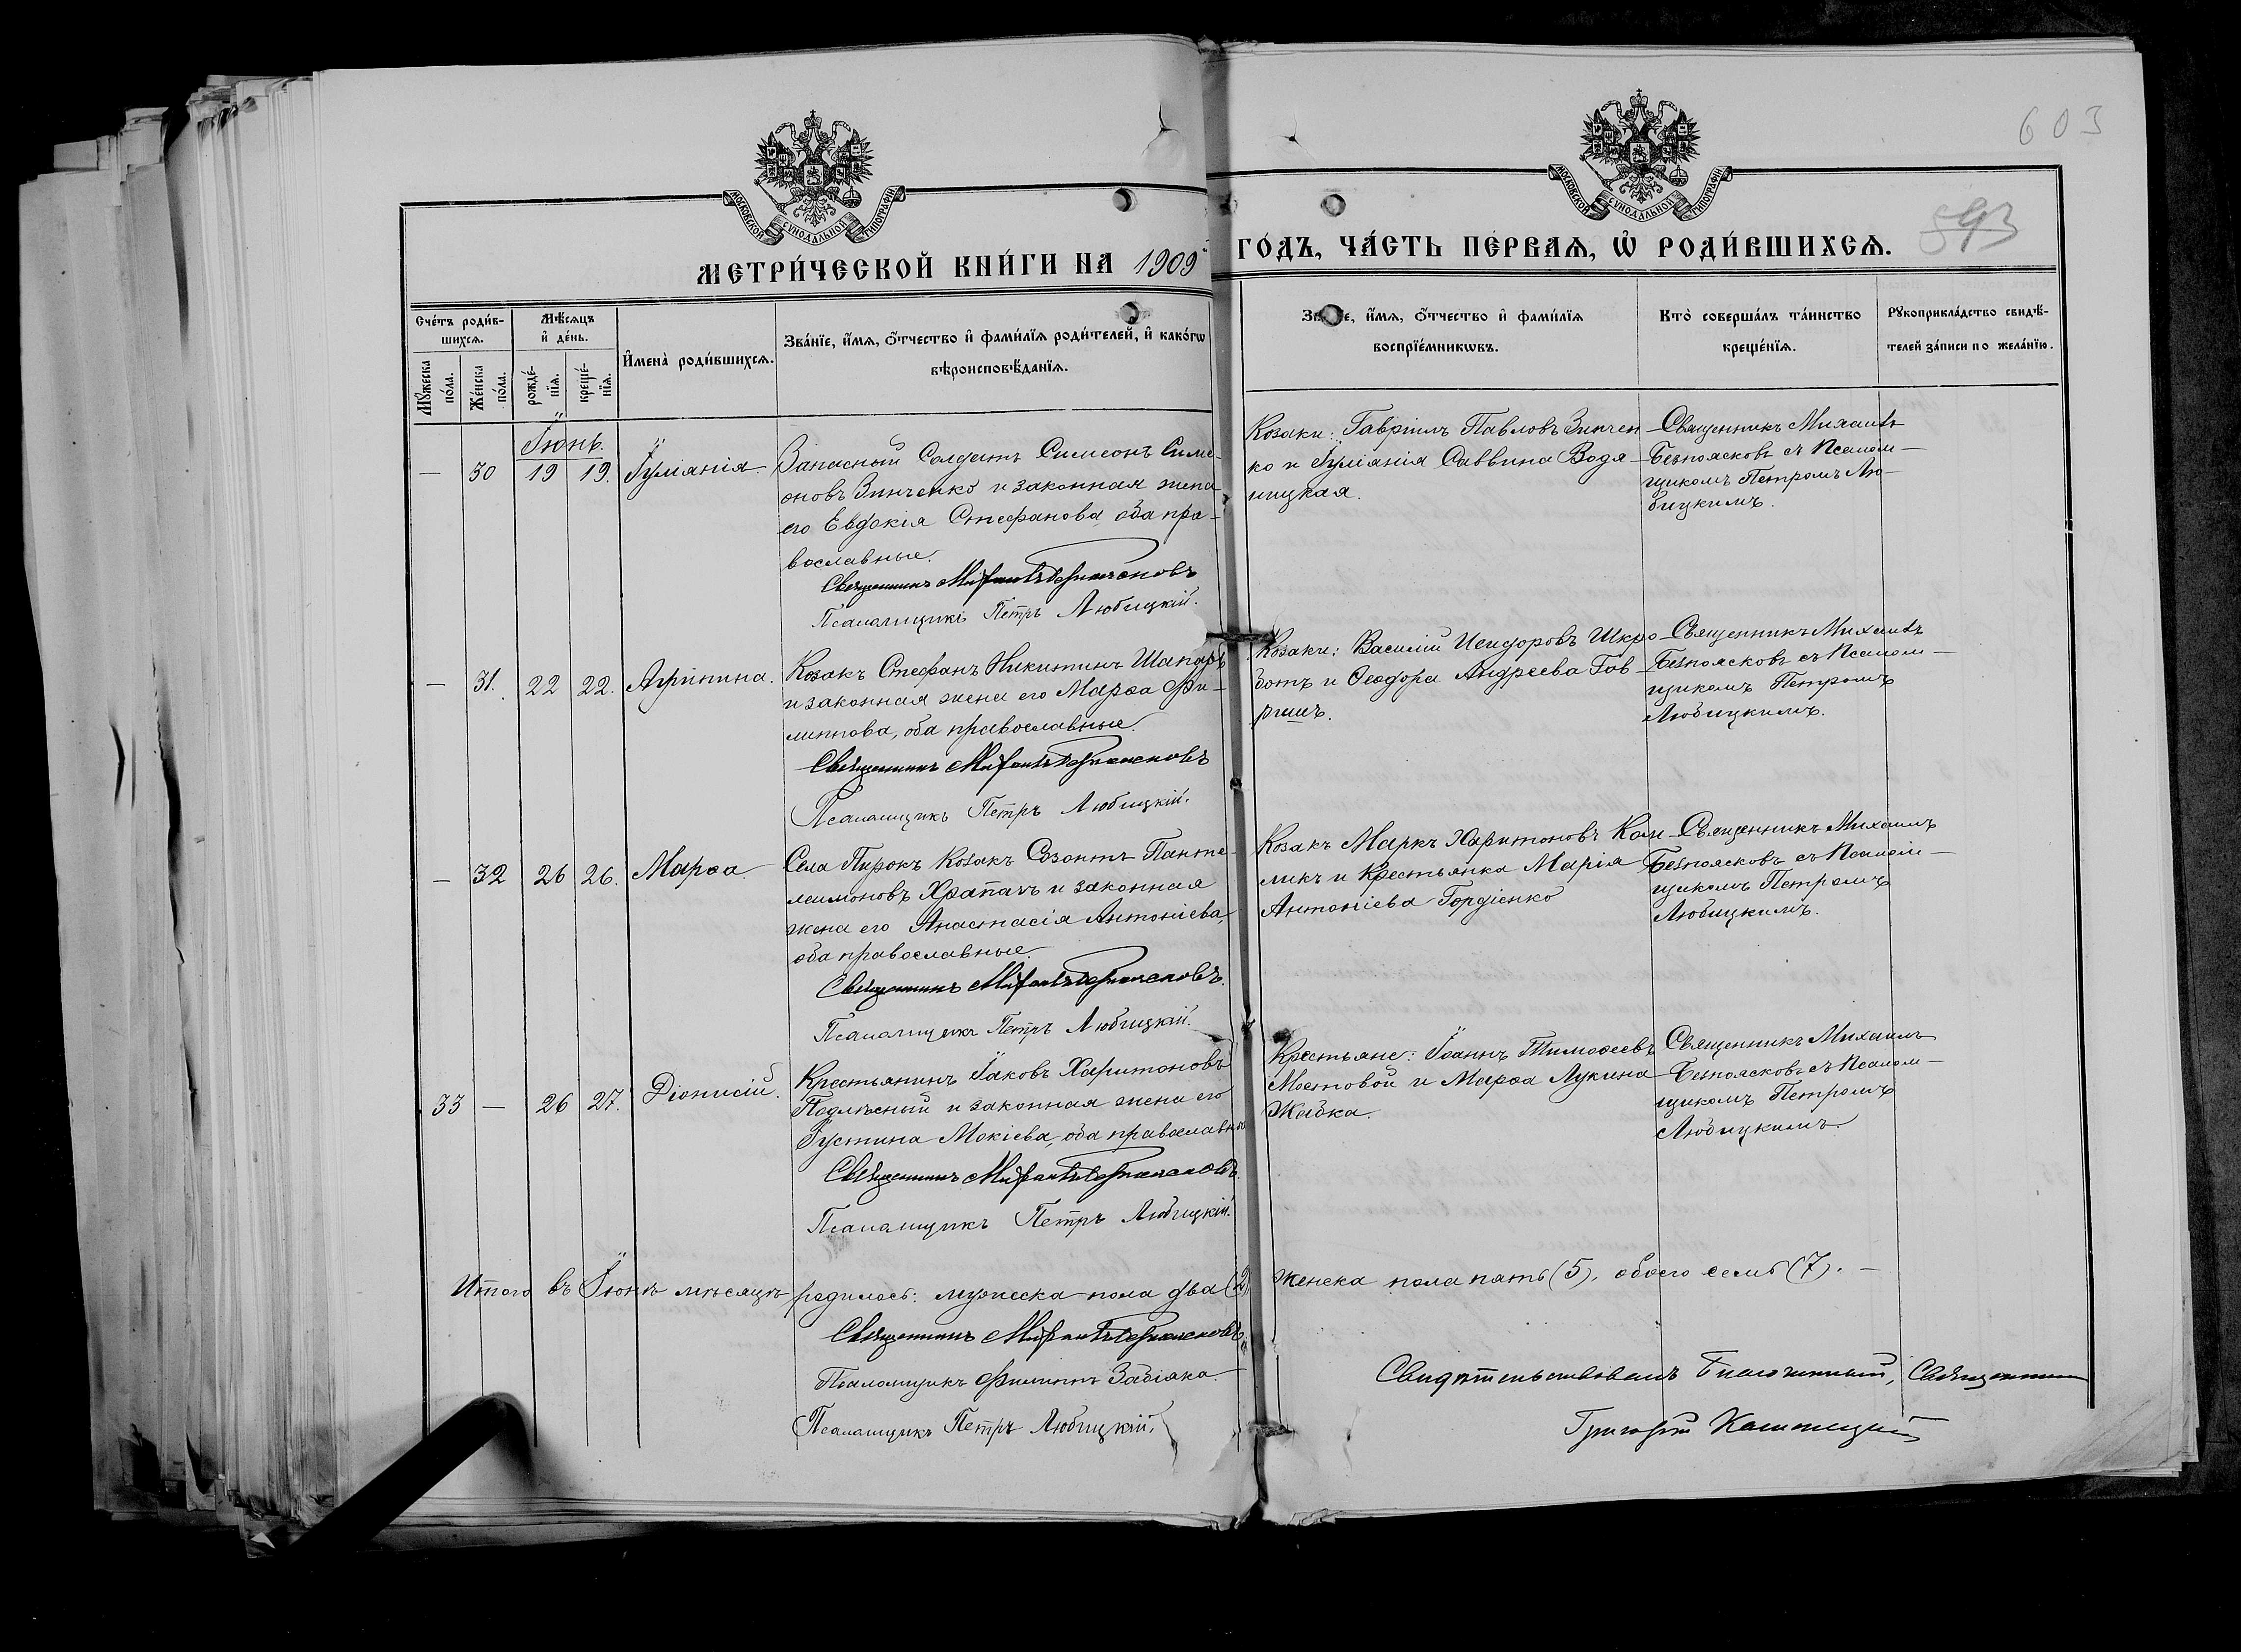 603
МОСКОВСКОЙ СѴНОДАЛЬНОЙ ТИПОГРАФІИ
МОСКОВСКОЙ СѴНОДАЛЬНОЙ ТИПОГРАФІИ
593
МЕТРИ́ЧЕСКОЙ КНИ́ГИ НА 1909 ГО́ДЪ, ЧА́СТЬ ПЕ́РВАѦ, Ѡ҆ РОДИ́ВШИХСѦ.
Сче́тъ роди́в-
шихсѧ.
Мѣ́сѧцъ
и҆ де́нь.
Мꙋ́жеска
по́ла.
Же́нска
по́ла.
рожде́-
нїѧ.
креще́-
нїѧ.
И҆мена̀ роди́вшихсѧ.
Зва́нїе, и҆́мѧ, ѻ҆́тчество и҆ фами́лїѧ роди́телей, и҆ како́гѡ
вѣроисповѣ́данїѧ.
Зва́нїе, и҆́мѧ, ѻ҆́тчество и҆ фами́лїѧ
воспрїе́мникѡвъ.
Кто̀ соверша́лъ та́инство
креще́нїѧ.
Рꙋкоприкла́дство свидѣ́-
телей за́писи по жела́нїю.
Іюнь.
— 30 19 19. Іуліанія.
Запасный Солдатъ Симеонъ Симе-
оновъ Зинченко и законная жена
его Евдокія Стефанова, оба пра-
вославные.
Священникъ Михаилъ Безпоясковъ
Псаломщикъ Петръ Любицкій.
Козаки: Гавріилъ Павловъ Зинчен-
ко и Іуліанія Саввина Водя-
ницкая.
Священникъ Михаилъ
Безпоясковъ съ Псалом-
щикомъ Петромъ Лю-
бицкимъ.
— 31. 22 22. Агрипина.
Козакъ Стефанъ Никитинъ Шапарь
и законная жена его Марѳа Фи-
липпова, оба православные.
Священникъ Михаилъ Безпоясковъ
Псаломщикъ Петръ Любицкій.
Козаки: Василій Исидоровъ Шкро-
ботъ и Ѳеодора Андреева Гав-
ришъ.
Священникъ Михаилъ
Безпоясковъ съ Псалом-
щикомъ Петромъ
Любицкимъ.
— 32 26 26. Марѳа.
Села Пирокъ Козакъ Созонтъ Панте-
леимоновъ Храпачъ и законная
жена его Анастасія Антоніева,
оба православные.
Священникъ Михаилъ Безпоясковъ.
Псаломщикъ Петръ Любицкій.
Козакъ Маркъ Харитоновъ Кам-
ликъ и Крестьянка Марія
Антоніева Гордіенко
Священникъ Михаилъ
Безпоясковъ съ Псалом-
щикомъ Петромъ
Любицкимъ.
33 — 26 27. Діонисій.
Крестьянинъ Іаковъ Харитоновъ
Подлѣсный и законная жена его
Іустина Мокіева, оба православные
Священникъ Михаилъ Безпоясковъ.
Псаломщикъ Петръ Любицкій.
Крестьяне: Іоаннъ Тимоѳеевъ
Мостовой и Марѳа Лукина
Жабка.
Священникъ Михаилъ
Безпоясковъ съ Псалом-
щикомъ Петромъ
Любицкимъ.
Итого въ Іюнѣ мѣсяцѣ родилось: мужеска пола два (2) женска пола пять (5), обоего семь (7). —
Священникъ Михаилъ Безпоясковъ
Псаломщикъ Филиппъ Забіяка.
Псаломщикъ Петръ Любицкій.
Свидѣтельствовалъ Благочинный, Священникъ
Григорій